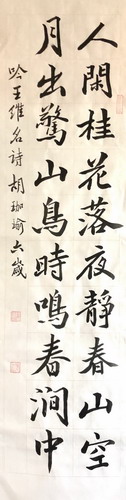 人閑桂花落夜靜春山空
月出驚山鳥時鳴春澗中
吟王維名詩胡珈瑜六歲